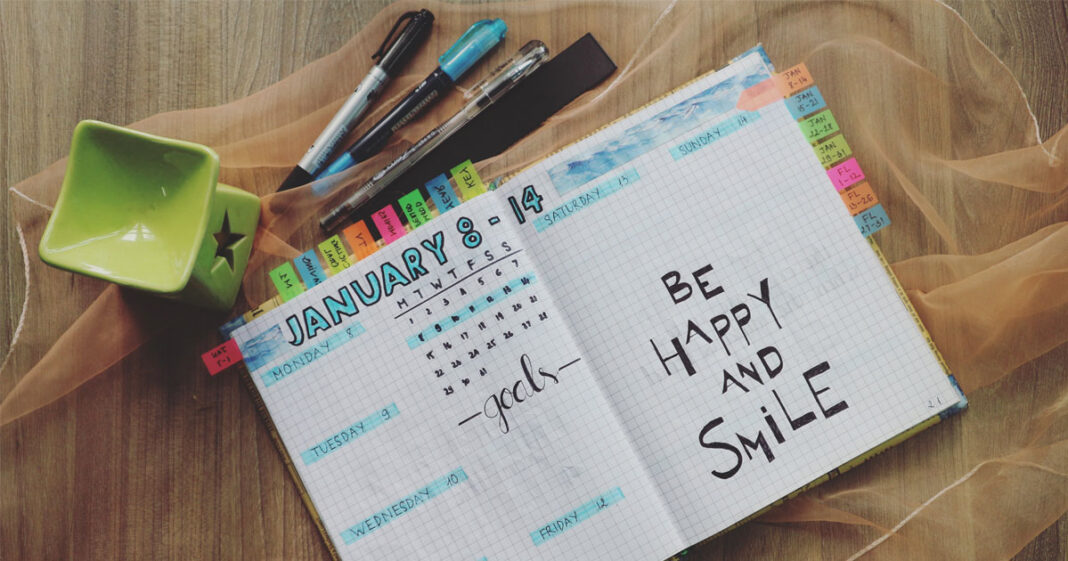 JANUARY 8-14
M T W T F S S
1 2 3 4 5 6 7
8 9 10 11 12 13 14
15 16 17 18 19 20 21
22 23 24 25 26 27 28
29 30 31
MONDAY 8
goals
TUESDAY 9
WEDNESDAY 10
FRIDAY 12
SATURDAY 13
SUNDAY 14
BE
HAPPY
AND
SMiLE
21
JAN
8-14
JAN
15-21
JAN
22-28
JAN
29-31
FL
1-12
FL
FL